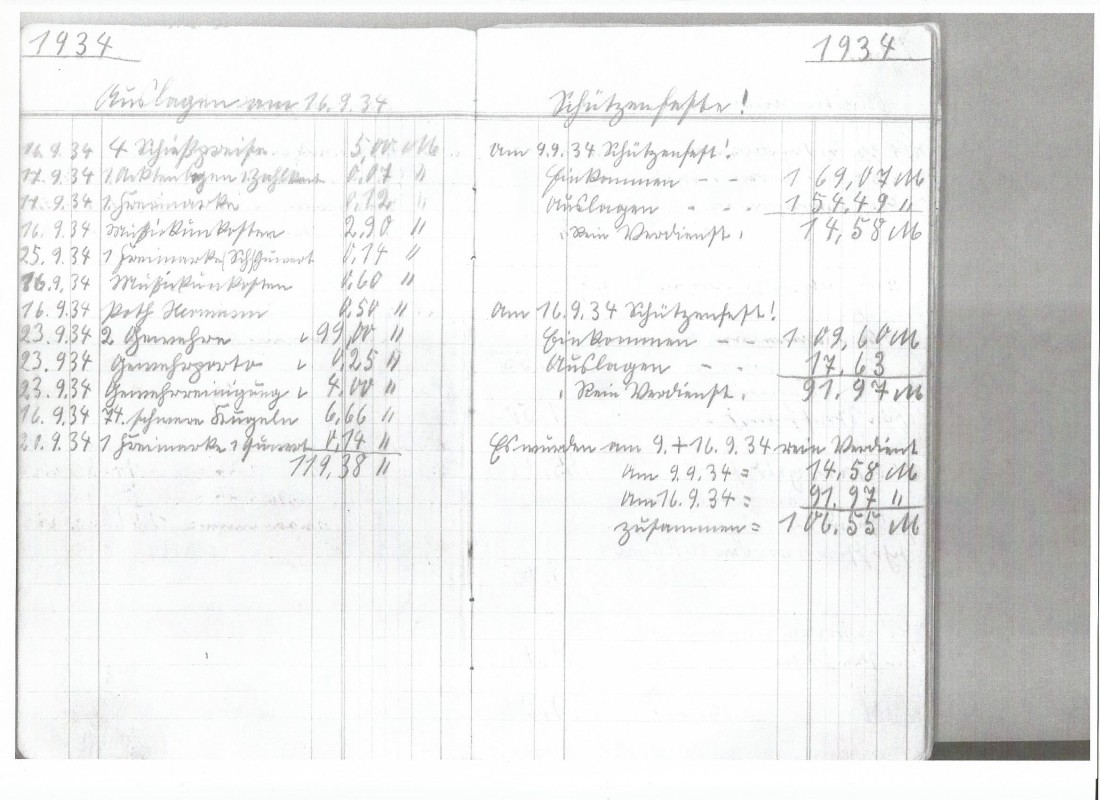 1934
Auslagen am 16.9.34
16.9.34 4 Schießpreise 5,00 M
17.9.34 1 Aktenbogen 1 Zahlkart 0,07 "
17.9.34 1 Freimarke 0,12 "
16.9.34 Mußickunkosten 2,90 "
25.9.34 1 Freimarke 0,14 "
16.9.34 Mußickunkosten 0,60 "
16.9.34 Hermann 0,50 "
23.9.34 2 Gewehre 99,00 "
23.934 Gewehrporto 0,25 "
23.9.34 Gewehrreinigung 4.00 "
16.9.34 74. schwere Kugeln 6,66 "
21.9.34 1 Freimarke 1 Kuwert 0,14 "
119,38 "
1934
Schützenfeste!
Am 9.9.34 Schützenfest!
Einkommen - - 169,07 M
Auslagen - - - 154.49 "
Rein Verdienst 14,58 M
Am 16.9.34 Schützenfest!
Einkommen - - 109,60 M
Auslagen - - 17,63
Rein Verdienst 91.97 M
Es wurden am 9.+16.9.34 rein Verdient
Am 9.9.34 = 14.58 M
Am 16.9.34 = 91.97 "
zusammen = 106.55 M